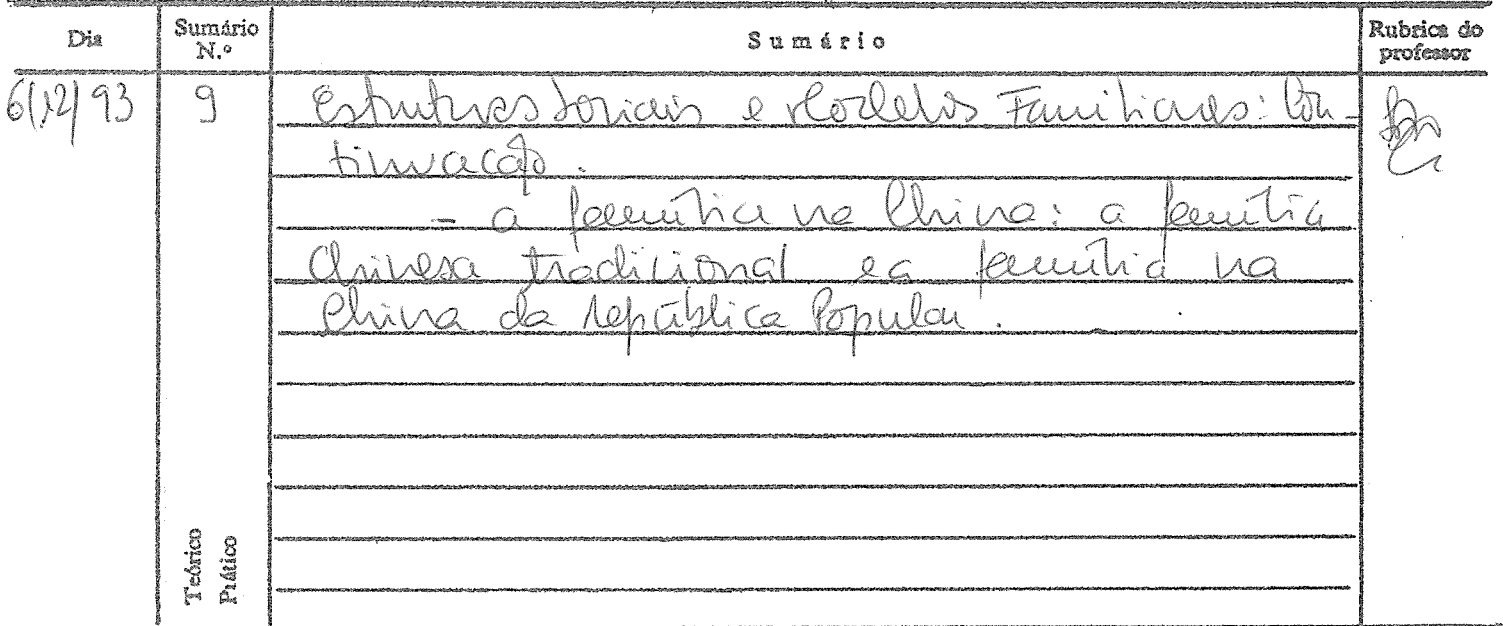 Dia Sumário N.º Sumário Rubrica do professor
6/12/93 9 Estruturas Sociais e Modelos Familiares: Con-
tinuação.
- a família na China: a família
Chinesa tradicional e a família na
China da República Popular.
Teórico
Prático